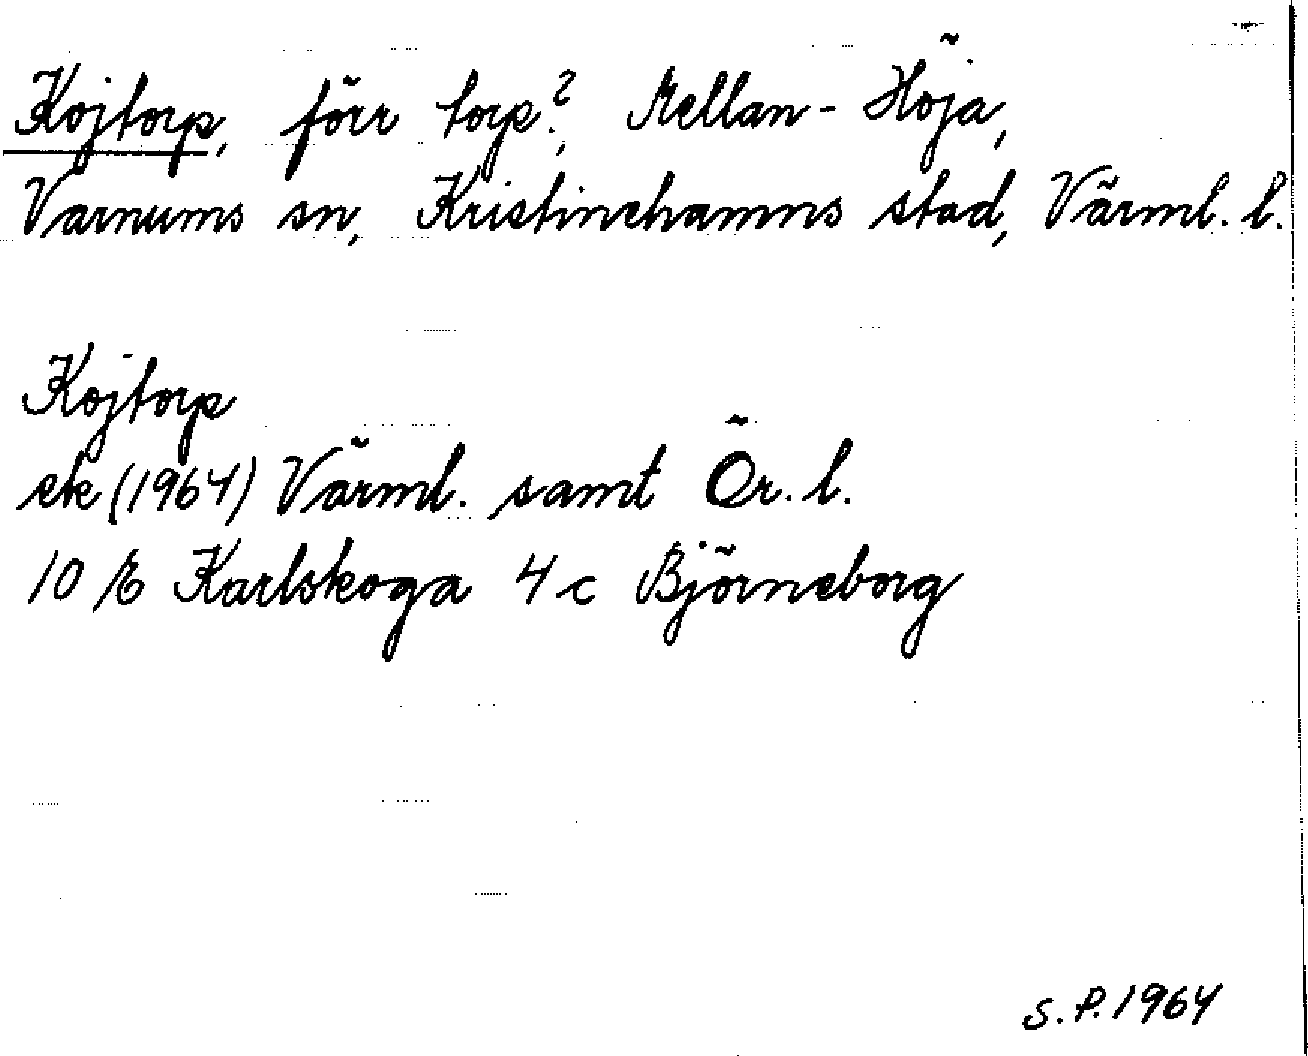 Kojtorp, förr torp?, Mellan-Höja,
Varnums sn, Kristinehamns stad, Värml. l.
Kojtorp
ek (1964) Värml. samt Ör. l.
10 E Karlskoga 4 c Björneborg
S. P. 1964